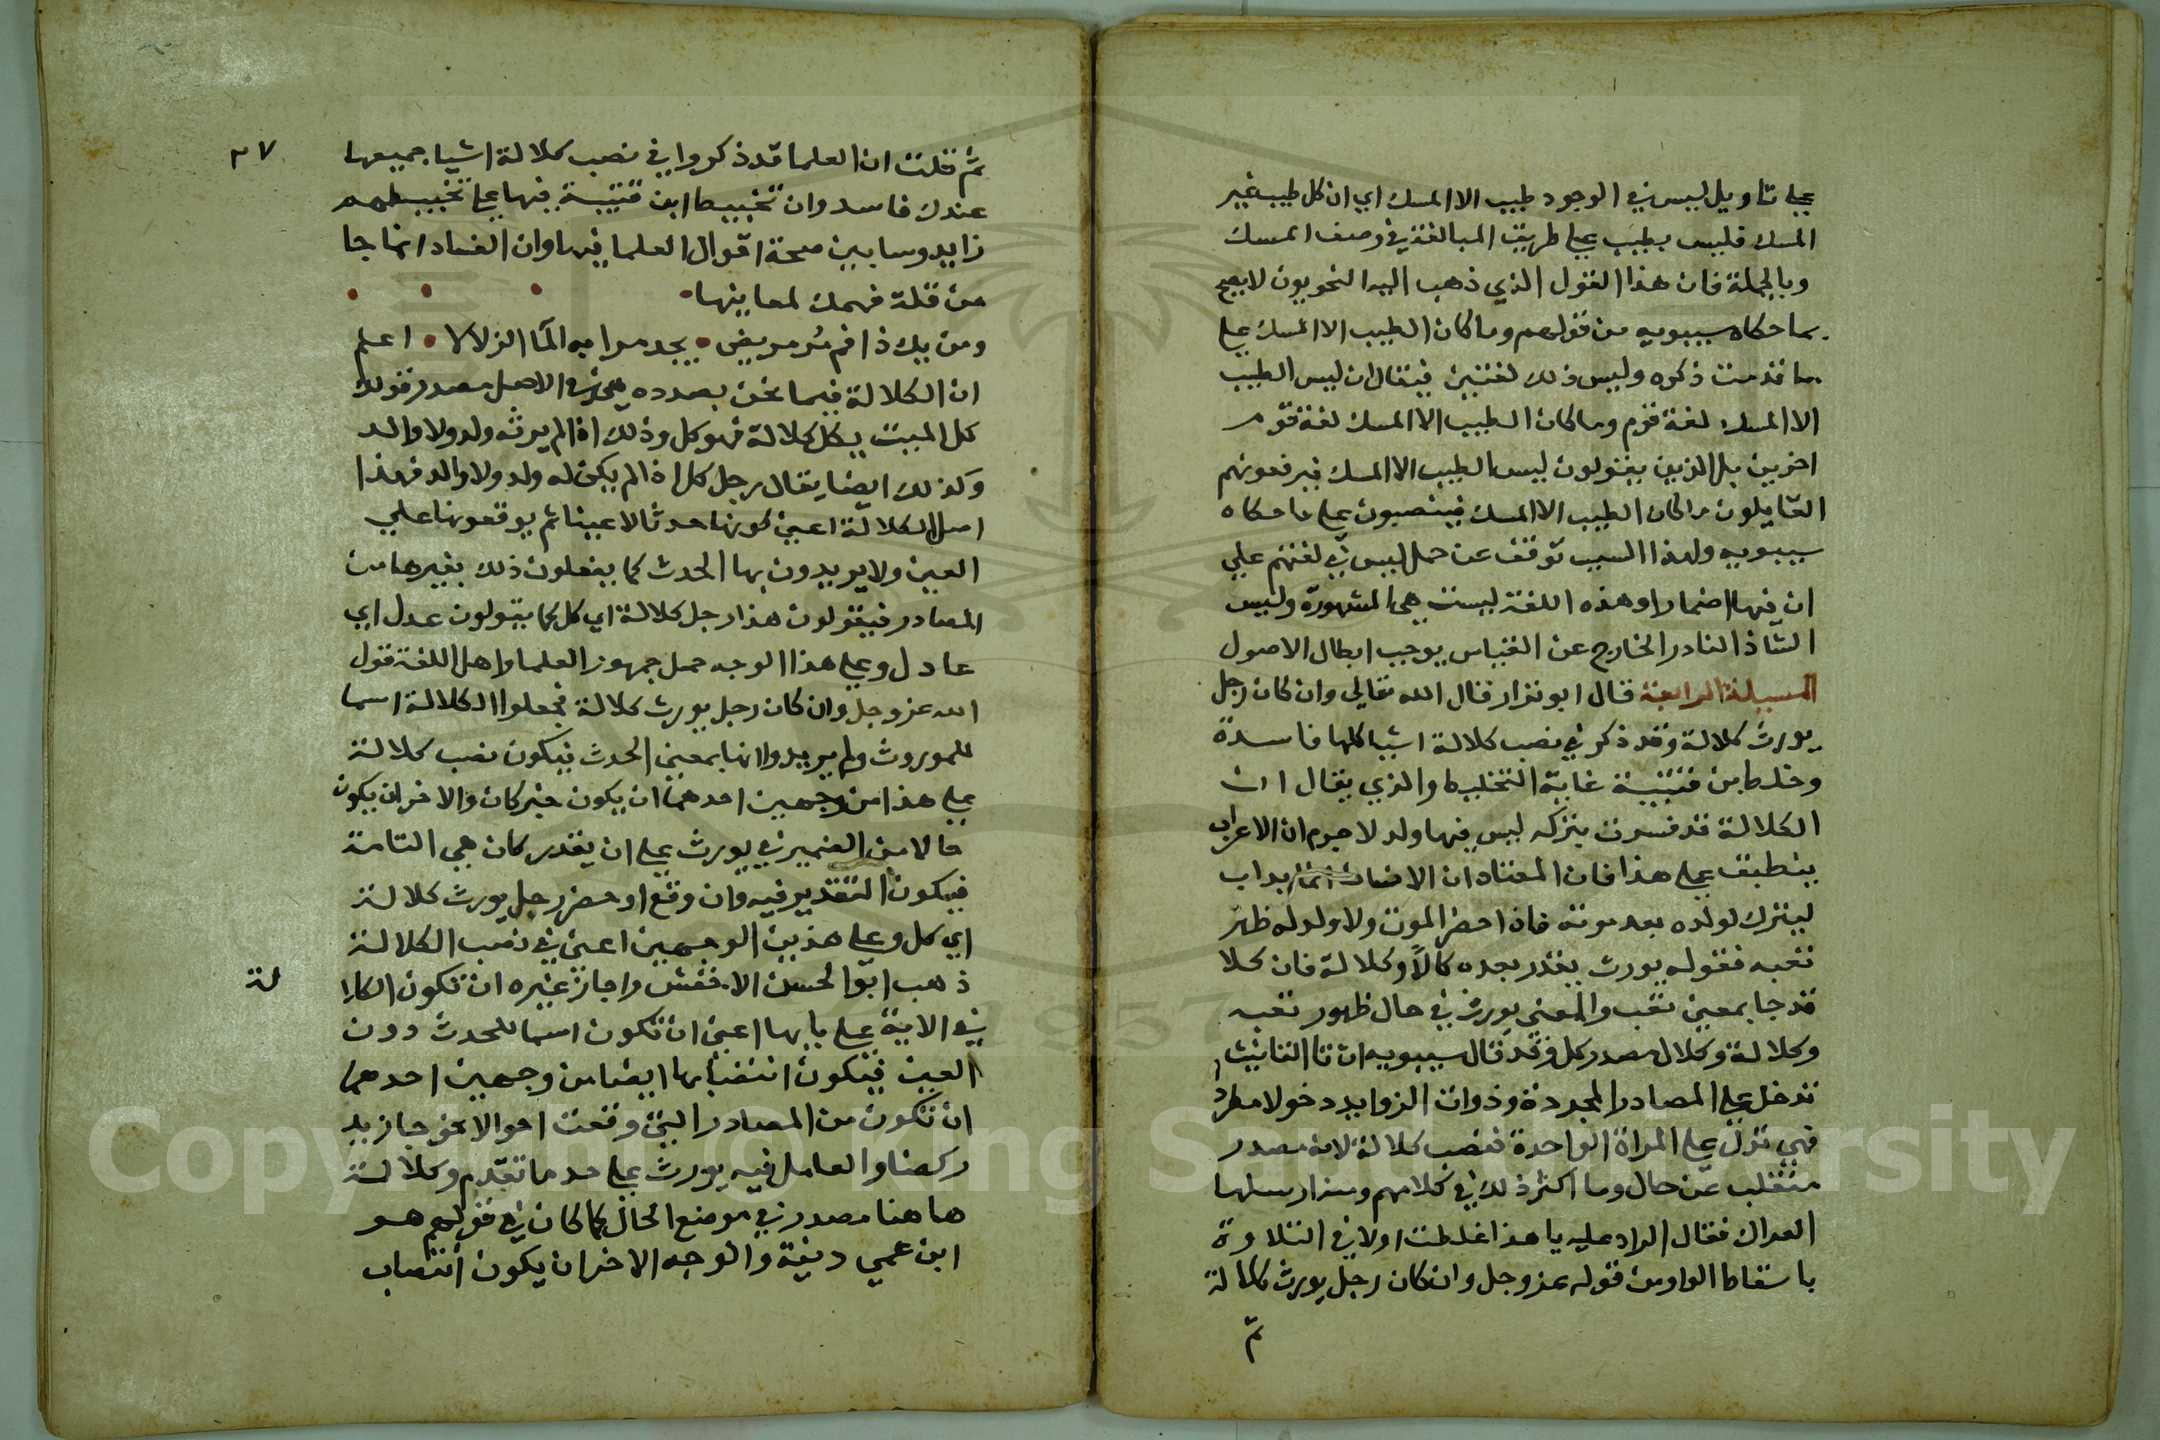 على تاويل ليس في الوجود طيب الا المسك اي ان كل طيب غير
المسك فليس بطيب على طريق المبالغة في وصف المسك
وبالجملة فان هذا القول الذي ذهب اليه النحويون لا يصح
بما حكاه سيبويه من قولهم وما كان الطيب الا المسك على
ما قدمت ذكره وليس ذلك لغتين فيقال ان ليس الطيب
الا المسك لغة قوم وما كان الطيب الا المسك لغة قوم
اخرين بل الذين يقولون ليس الطيب الا المسك فيرفعونهم
القايلون ما كان الطيب الا المسك فينصبون على ما حكاه
سيبويه ولهذا السبب توقف عن حمل ليس في لغتهم على
ان فيها اضمارا وهذه اللغة ليست هي المشهورة وليس
الشاذ النادر الخارج عن القياس يوجب ابطال الاصول
المسيلة الرابعة قال ابو نزار قال الله تعالى وان كان رجل
يورث كلالة وقد ذكر في نصب كلالة اشيا كلها فاسدة
وخلط ابن قتيبة غاية التخليط والذي يقال ان
الكلالة قد فسرت بتركه ليس فيها ولد لا جرم ان الاعراب
ينطبق على هذا فان المعناه ان الانسان انما يداب
ليترك لولده بعد موته فاذا حضر الموت ولا ولد له ظهر
تعبه فقوله يورث يقدر بعده كالا وكلالة فان كلا
قد جا بمعنى تعب والمعنى يورث في حال ظهور تعبه
وكلالة وكلال مصدر كل وقد قال سيبويه ان تا التانيث
تدخل على المصادر المجردة وذوات الزوايد دخولا مطردا
فهي تدل على المراة الواحدة فنصب كلالة لانه مصدر
منقلب عن حال وما اكثر ذلك في كلامهم ومنه ارسلها
العراك فقال الراد عليه يا هذا غلطت اولا في التلاوة
باسقاط الواو من قوله عز وجل وان كان رجل يورث كلالة
ثم
٢٧
ثم قلت ان العلما قد ذكروا في نصب كلالة اشيا جميعها
عندك فاسد وان تخبيط ابن قتيبة فيها على تخبيطهم
زايد وسابين صحة اقوال العلما فيها وان الفساد انما جا
من قلة فهمك لمعاينها
ومن يك ذا فم مر مريض يجد مرا به الما الزلالا اعلم
ان الكلالة فيما نحن بصدده في الاصل مصدر قولك
كل الميت يكل كلالة فهو كل وذلك اذا لم يرثه ولد ولا والد
وكذلك ايضا يقال رجل كل اذا لم يكن له ولد ولا والد فهذا
اصل الكلالة اعني كونها حدثا لا عينا ثم يوقعونها على
العين ولا يريدون بها الحدث كما يفعلون ذلك بغيرها من
المصادر فيقولون هذا رجل كلالة اي كل كما يقولون عدل اي
عادل وعلى هذا الوجه حمل جمهور العلما واهل اللغة قول
الله عز وجل وان كان رجل يورث كلالة فجعلوا الكلالة اسما
للموروث ولم يريدوا انها بمعنى الحدث فيكون نصب كلالة
على هذا من وجهين احدهما ان يكون خبر كان والاخر ان يكون
حالا من الضمير في يورث على ان يقدر كان هي التامة
فيكون التقدير فيه وان وقع او حضر رجل يورث كلالة
اي كل وعلى هذين الوجهين اعني في نصب الكلالة
ذهب ابو الحسن الاخفش واجاز غيره ان تكون الكلا
لة
في الاية على بابها اعني ان تكون اسما للحدث دون
العين فيكون انتصابها ايضا من وجهين احدهما
ان تكون من المصادر التي وقعت احوالا نحو جا زيد
ركضا والعامل فيه يورث على حد ما تقدم وكلالة
هاهنا مصدر في موضع الحال كما كان في قولهم هو
ابن عمي دنية والوجه الاخر ان يكون انتصاب
Copyright © King Saud University
1957